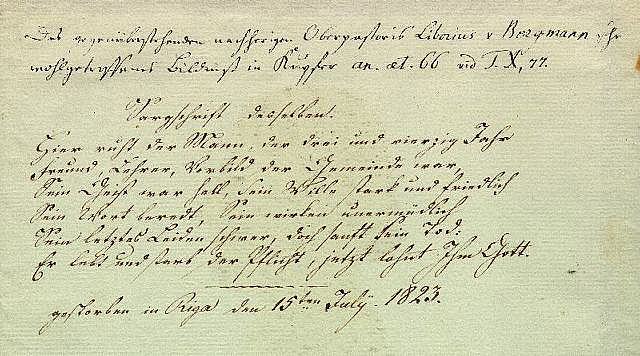 Des gegenüberstehenden nachherigen Oberpastoris Liborius v Bergmann sehr
wohlgetroffenes Bildniß in Kupfer an. æt. 66 vid T. X, 77.
Sargschrift desselben.
Hier ruht der Mann, der drei und vierzig Jahr
Freund, Lehrer, Vorbild der Gemeinde war,
Sein Geist war hell sein Wille stark und friedlich
Sein Wort beredt, Sein wirken unermüdlich
Sein letztes Leiden schwer, doch sanft sein Tod:
Er lebt und starb der Pflicht, jetzt lohnt Ihm Gott.
gestorben in Riga den 15ten July. 1823.